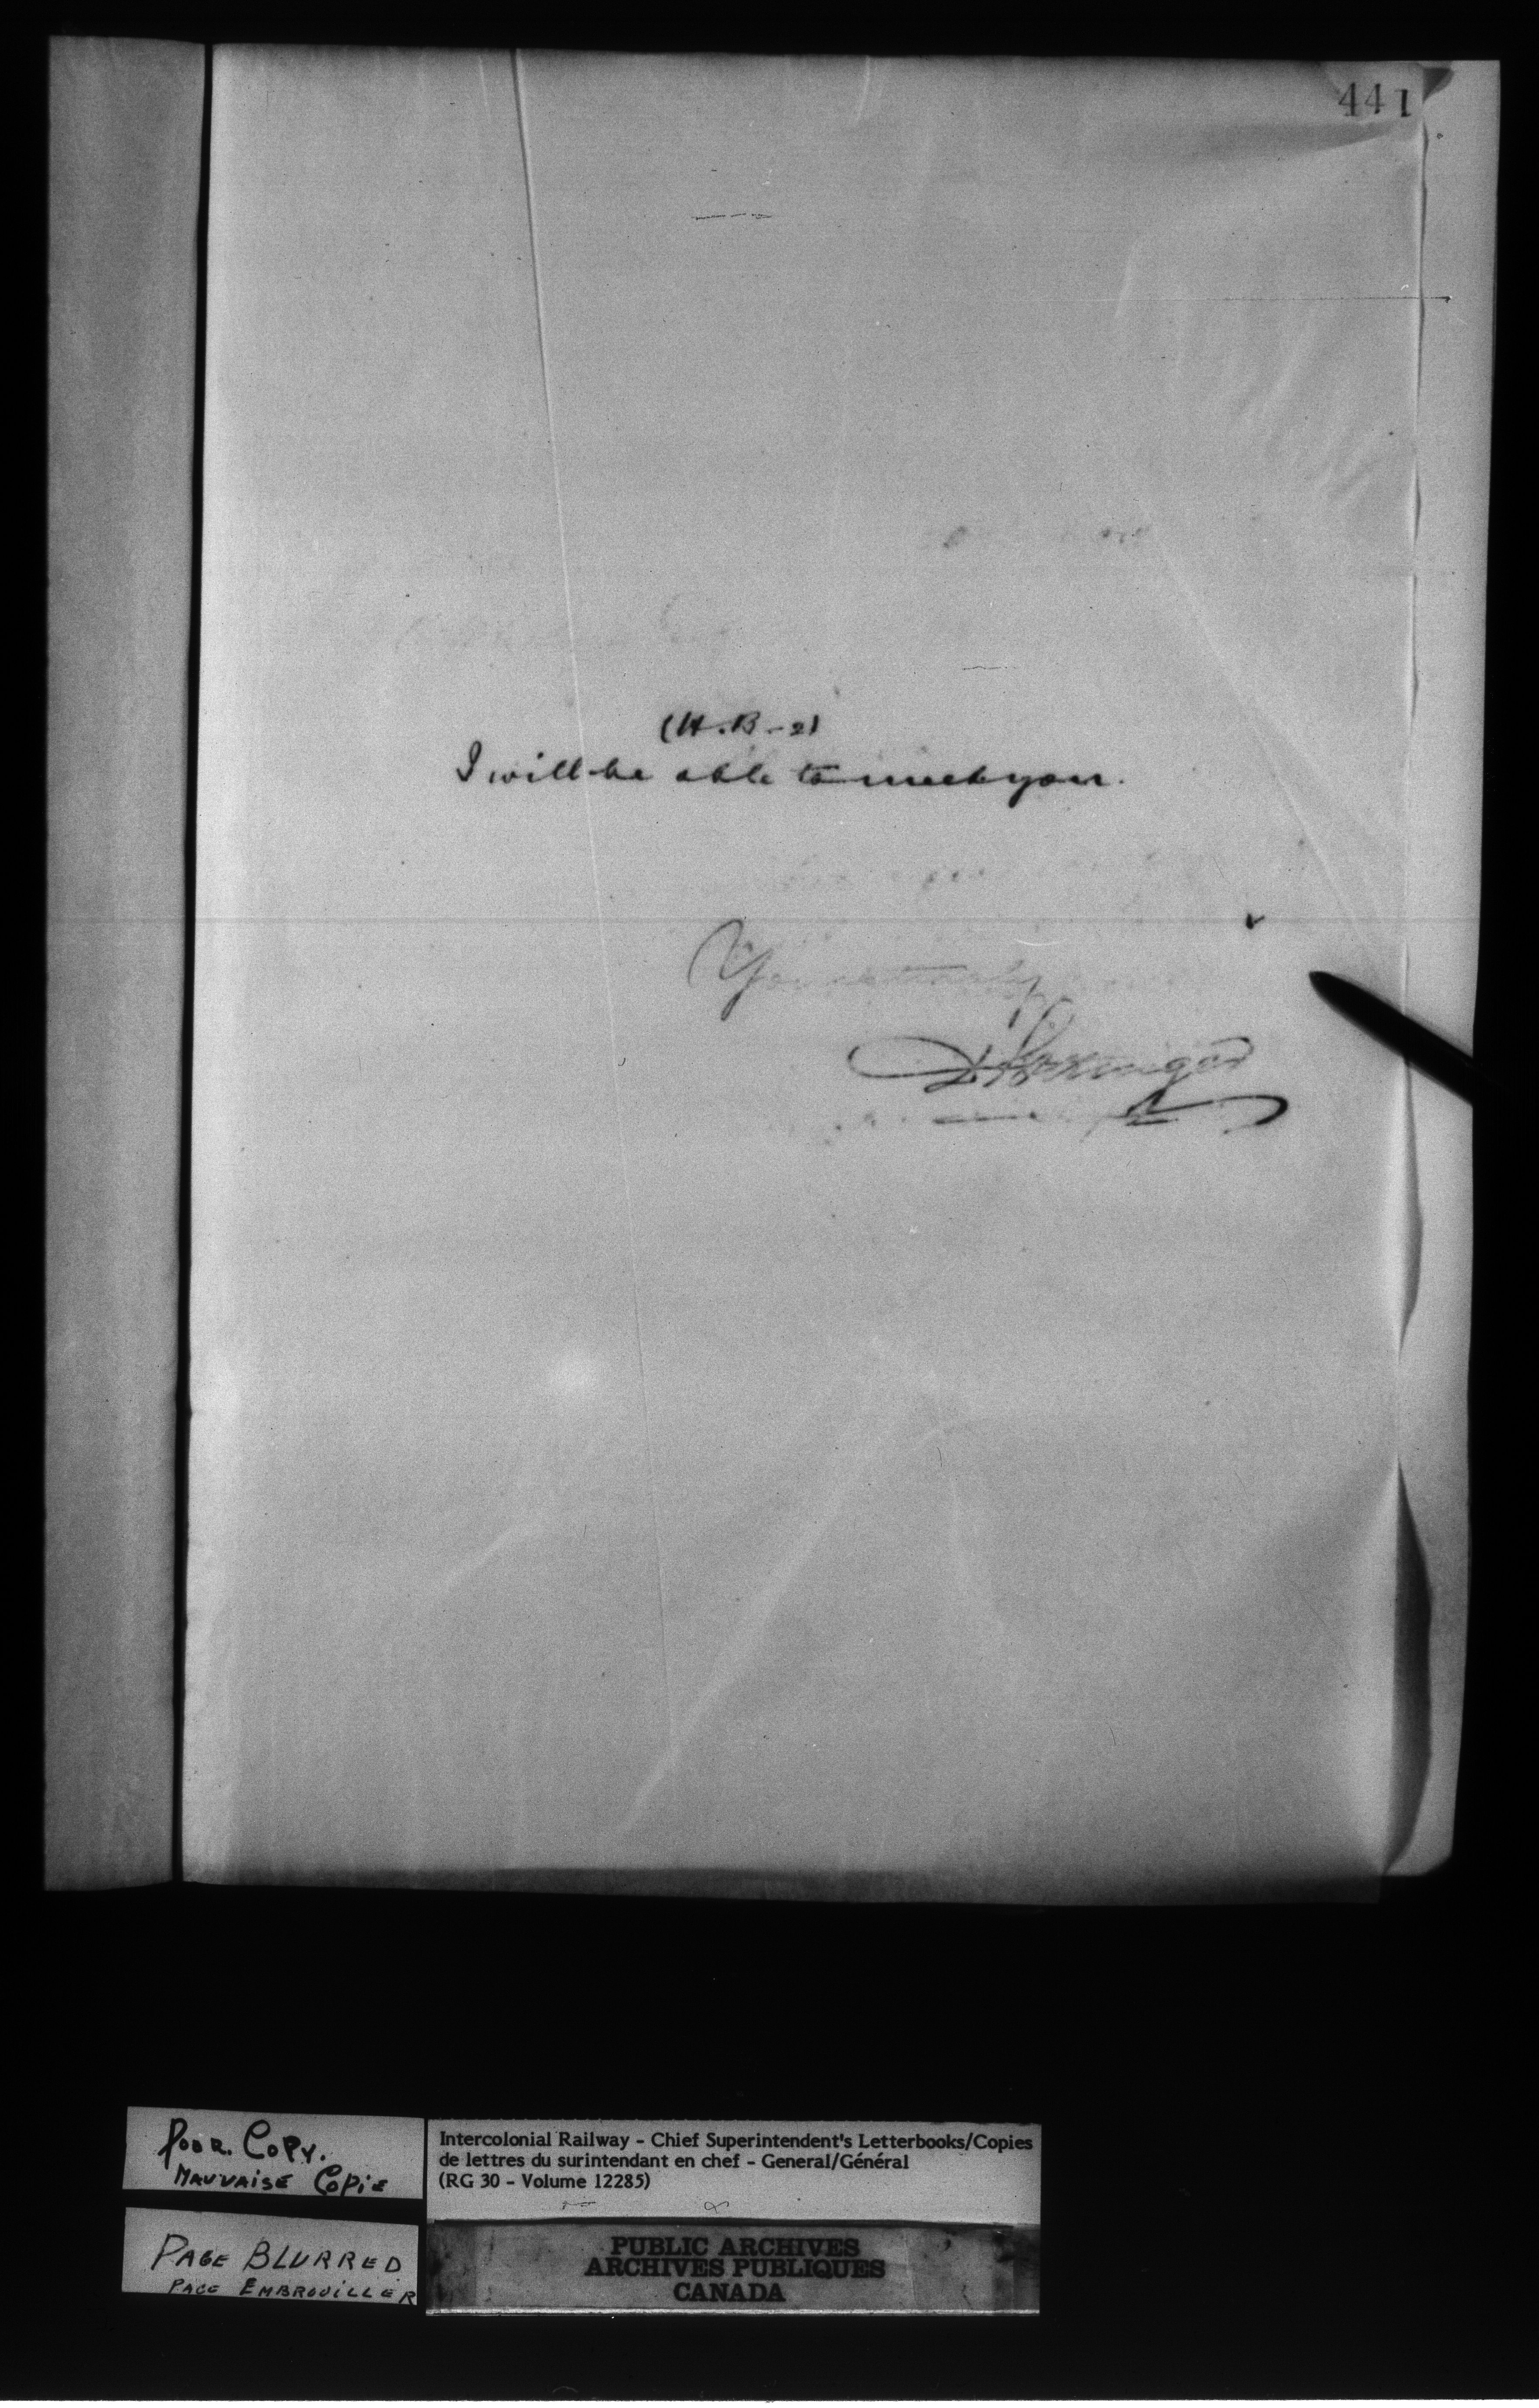 441
(H.B-2)
I will be able to meet you.
Yours truly
D Pottinger
Poor. Copy.
Mauvaise Copie
Page Blurred
Page Embrouiller
Intercolonial Railway - Chief Superintendent's Letterbooks/Copies
de lettres du surintendant en chef - General/Général
(RG 30 - Volume 12285)
PUBLIC ARCHIVES
ARCHIVES PUBLIQUES
CANADA